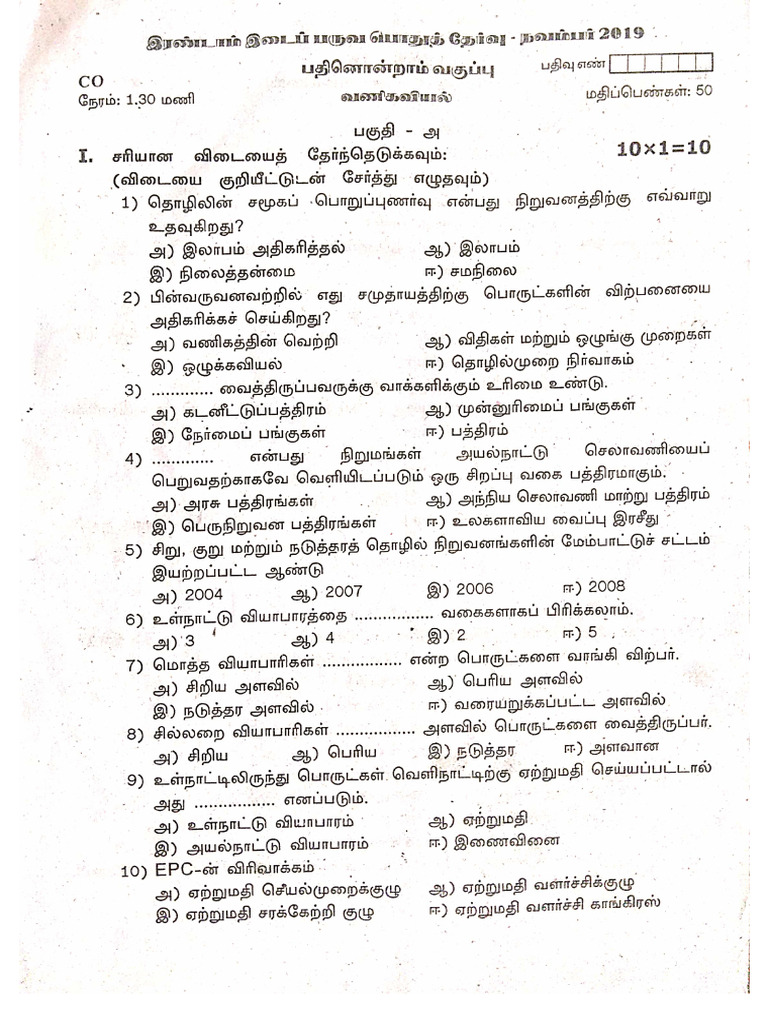 இரண்டாம் இடைப் பருவ பொதுத் தேர்வு - நவம்பர் 2019
பதினொன்றாம் வகுப்பு
பதிவு எண்
CO
நேரம்: 1.30 மணி
வணிகவியல்
மதிப்பெண்கள்: 50
பகுதி - அ
I. சரியான விடையைத் தேர்ந்தெடுக்கவும்: 10×1=10
(விடையை குறியீட்டுடன் சேர்த்து எழுதவும்)
1) தொழிலின் சமூகப் பொறுப்புணர்வு என்பது நிறுவனத்திற்கு எவ்வாறு
உதவுகிறது?
அ) இலாபம் அதிகரித்தல் ஆ) இலாபம்
இ) நிலைத்தன்மை ஈ) சமநிலை
2) பின்வருவனவற்றில் எது சமுதாயத்திற்கு பொருட்களின் விற்பனையை
அதிகரிக்கச் செய்கிறது?
அ) வணிகத்தின் வெற்றி ஆ) விதிகள் மற்றும் ஒழுங்கு முறைகள்
இ) ஒழுக்கவியல் ஈ) தொழில்முறை நிர்வாகம்
3) ............. வைத்திருப்பவருக்கு வாக்களிக்கும் உரிமை உண்டு.
அ) கடனீட்டுப்பத்திரம் ஆ) முன்னுரிமைப் பங்குகள்
இ) நேர்மைப் பங்குகள் ஈ) பத்திரம்
4) ............. என்பது நிறுமங்கள் அயல்நாட்டு செலாவணியைப்
பெறுவதற்காகவே வெளியிடப்படும் ஒரு சிறப்பு வகை பத்திரமாகும்.
அ) அரசு பத்திரங்கள் ஆ) அந்நிய செலாவணி மாற்று பத்திரம்
இ) பெருநிறுவன பத்திரங்கள் ஈ) உலகளாவிய வைப்பு இரசீது
5) சிறு, குறு மற்றும் நடுத்தரத் தொழில் நிறுவனங்களின் மேம்பாட்டுச் சட்டம்
இயற்றப்பட்ட ஆண்டு
அ) 2004 ஆ) 2007 இ) 2006 ஈ) 2008
6) உள்நாட்டு வியாபாரத்தை ................ வகைகளாகப் பிரிக்கலாம்.
அ) 3 ஆ) 4 இ) 2 ஈ) 5
7) மொத்த வியாபாரிகள் ................ என்ற பொருட்களை வாங்கி விற்பர்.
அ) சிறிய அளவில் ஆ) பெரிய அளவில்
இ) நடுத்தர அளவில் ஈ) வரையறுக்கப்பட்ட அளவில்
8) சில்லறை வியாபாரிகள் ................ அளவில் பொருட்களை வைத்திருப்பர்.
அ) சிறிய ஆ) பெரிய இ) நடுத்தர ஈ) அளவான
9) உள்நாட்டிலிருந்து பொருட்கள் வெளிநாட்டிற்கு ஏற்றுமதி செய்யப்பட்டால்
அது ................ எனப்படும்.
அ) உள்நாட்டு வியாபாரம் ஆ) ஏற்றுமதி
இ) அயல்நாட்டு வியாபாரம் ஈ) இணைவினை
10) EPC-ன் விரிவாக்கம்
அ) ஏற்றுமதி செயல்முறைக்குழு ஆ) ஏற்றுமதி வளர்ச்சிக்குழு
இ) ஏற்றுமதி சரக்கேற்றி குழு ஈ) ஏற்றுமதி வளர்ச்சி காங்கிரஸ்